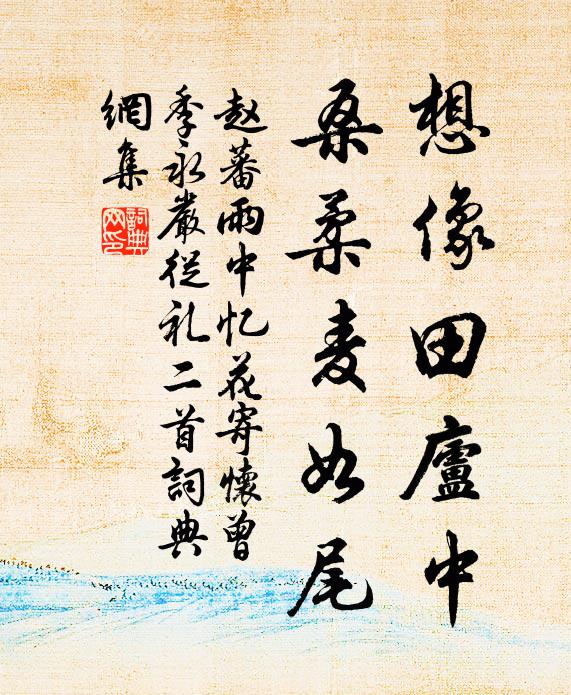 想像田廬中
桑柔麦如尾
赵蕃雨中忆花寄懷曾
季永嚴從礼二首詞典
網集
詞典
网印